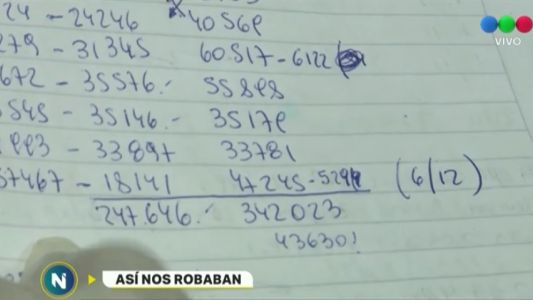 24 - 24246 40569
VIVO
279 - 31345 60.517 - 6122
672 - 35576.- 55898
545 - 35146.- 35179
993 - 33897 33781
57467 - 18141 47245 - 5299 (6/12)
247.646.- 342023
43630!
N
ASÍ NOS ROBABAN